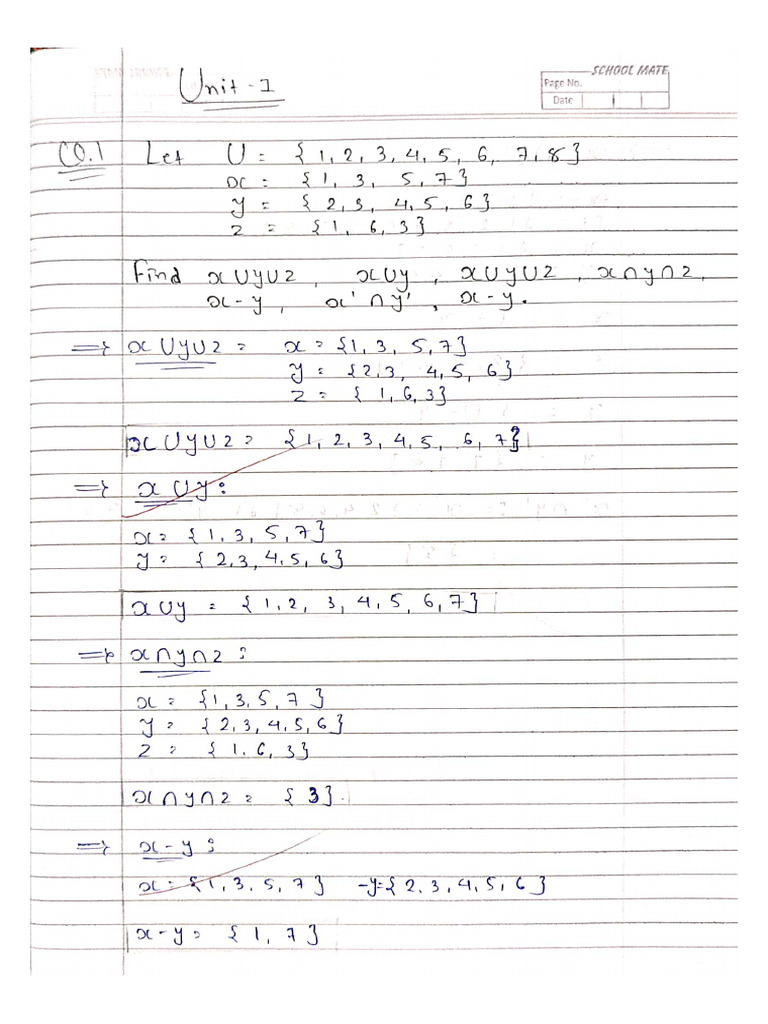 SCHOOL MATE
Page No.
Date
Unit - 1
CO.1 Let U = {1, 2, 3, 4, 5, 6, 7, 8}
x = {1, 3, 5, 7}
y = {2, 3, 4, 5, 6}
z = {1, 6, 3}
Find x∪y∪z, x∪y, x∪y∪z, x∩y∩z,
x-y, x'∩y', x-y.
⇒ x∪y∪z = x = {1, 3, 5, 7}
y = {2, 3, 4, 5, 6}
z = {1, 6, 3}
x∪y∪z = {1, 2, 3, 4, 5, 6, 7}
⇒ x∪y:
x = {1, 3, 5, 7}
y = {2, 3, 4, 5, 6}
x∪y = {1, 2, 3, 4, 5, 6, 7}
⇒ x∩y∩z:
x = {1, 3, 5, 7}
y = {2, 3, 4, 5, 6}
z = {1. 6, 3}
x∩y∩z = {3}.
⇒ x-y:
x = {1, 3, 5, 7} -y = {2, 3, 4, 5, 6}
x-y = {1, 7}